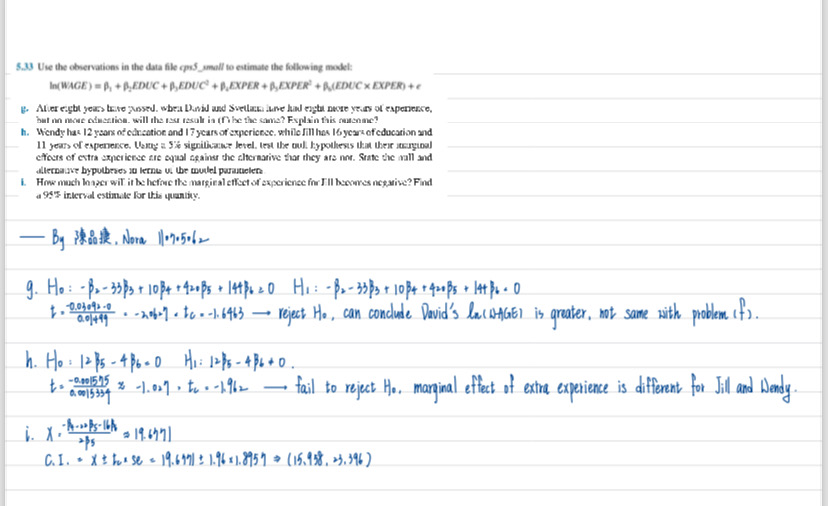 5.33 Use the observations in the data file cps5_small to estimate the following model:
ln(WAGE) = β₁ + β₂EDUC + β₃EDUC² + β₄EXPER + β₅EXPER² + β₆(EDUC × EXPER) + e
g. After eight years have passed, when David and Svetlana have had eight more years of experience,
but no more education, will the test result in (f) be the same? Explain this outcome?
h. Wendy has 12 years of education and 17 years of experience, while Jill has 16 years of education and
11 years of experience. Using a 5% significance level, test the null hypothesis that their marginal
effects of extra experience are equal against the alternative that they are not. State the null and
alternative hypotheses in terms of the model parameters
i. How much longer will it be before the marginal effect of experience for Jill becomes negative? Find
a 95% interval estimate for this quantity.
— By 陳品捷, Nora 110705062
g. H₀: -β₂-33β₃+10β₄+420β₅+144β₆≥0 H₁: -β₂-33β₃+10β₄+420β₅+144β₆<0
t = -0.03092-0 / 0.01499 = -2.0627, tc = -1.6463 → reject H₀, can conclude David's ln(WAGE) is greater, not same with problem (f).
h. H₀: 12β₅-4β₆=0 H₁: 12β₅-4β₆≠0.
t = -0.001575 / 0.0015334 ≈ -1.027, tc = -1.962 → fail to reject H₀, marginal effect of extra experience is different for Jill and Wendy.
i. X = -β₄-22β₅-16β₆ / 2β₅ = 19.6771
C.I. = X ± tc × se = 19.6771 ± 1.96 × 1.8957 ⇒ (15.958, 23.396)